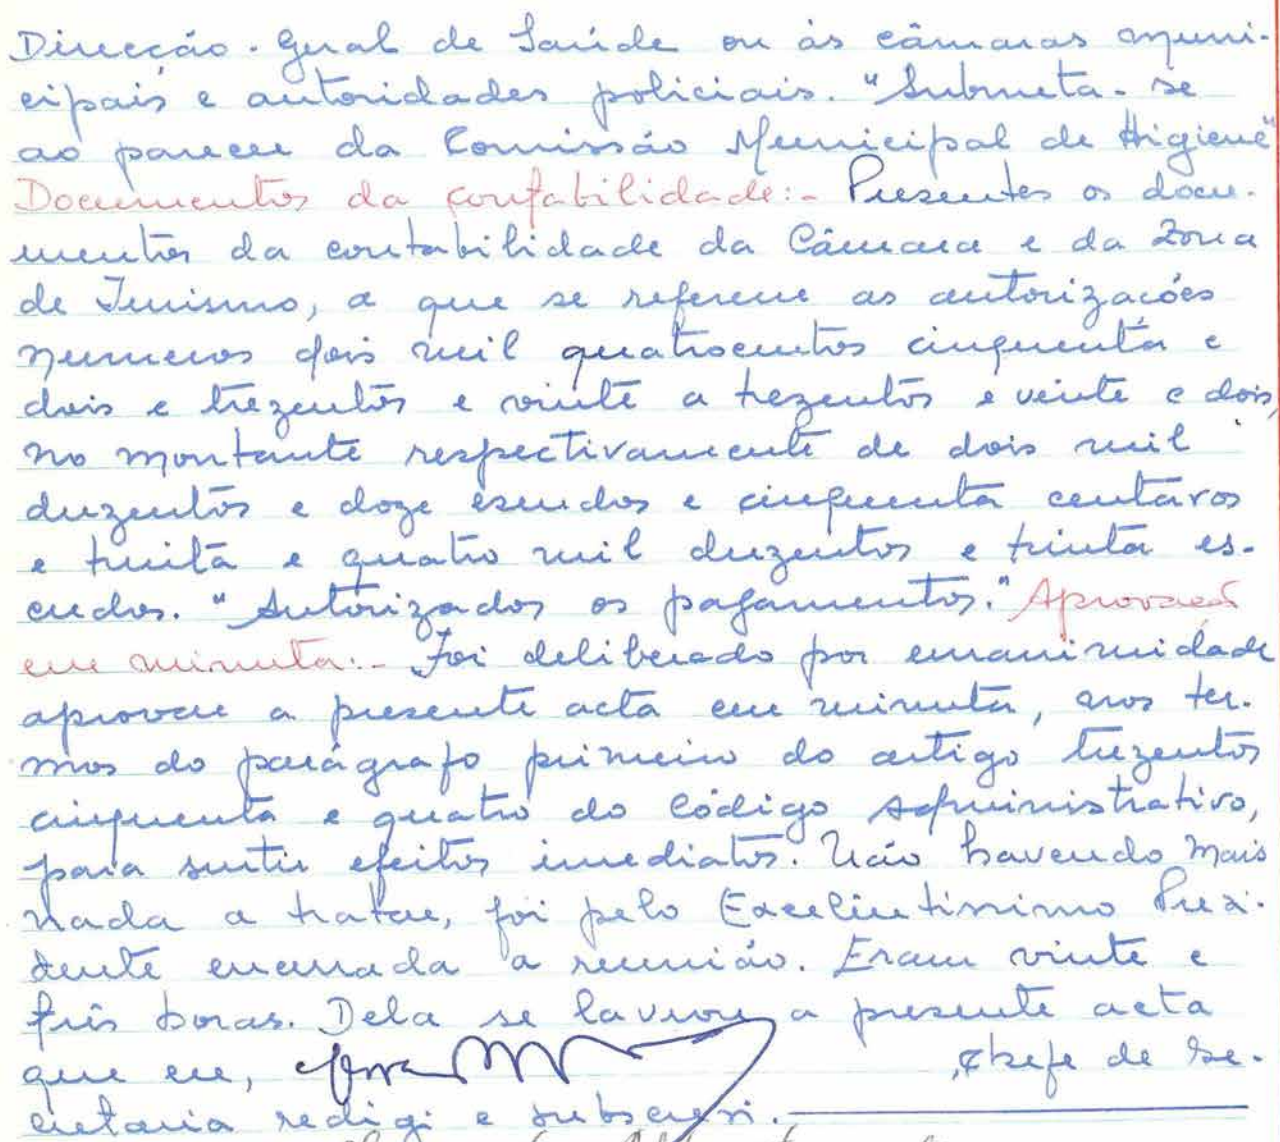 Direcção-Geral de Saúde ou às câmaras muni-
cipais e autoridades policiais. "Submeta-se
ao parecer da Comissão Municipal de Higiene"
Documentos da contabilidade:- Presentes os docu-
mentos da contabilidade da Câmara e da Zona
de Turismo, a que se referem as autorizações
numeros dois mil quatrocentos cinquenta e
dois e trezentos e vinte a trezentos e vinte e dois,
no montante respectivamente de dois mil
duzentos e doze escudos e cinquenta centavos
e trinta e quatro mil duzentos e trinta es-
cudos. "Autorizados os pagamentos." Aprovação
em minuta:- Foi deliberado por unanimidade
aprovar a presente acta em minuta, nos ter-
mos do parágrafo primeiro do artigo trezentos
cinquenta e quatro do Código Administrativo,
para surtir efeitos imediatos. Não havendo mais
nada a tratar, foi pelo Excelentissimo Presi-
dente encerrada a reunião. Eram vinte e
três horas. Dela se lavrou a presente acta
que eu, , chefe de Se-
cretaria redigi e subscrevi.